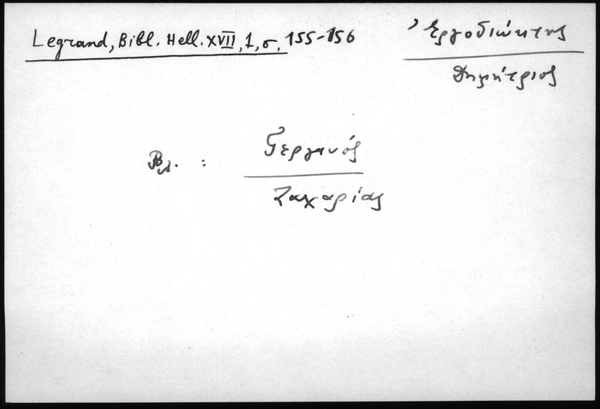 Legrand, Bibl. Hell. XVII, 1, σ. 155-156
Ἐργοδιώκτης
Δημήτριος
Βλ. :
Γεργανός
Ζαχαρίας